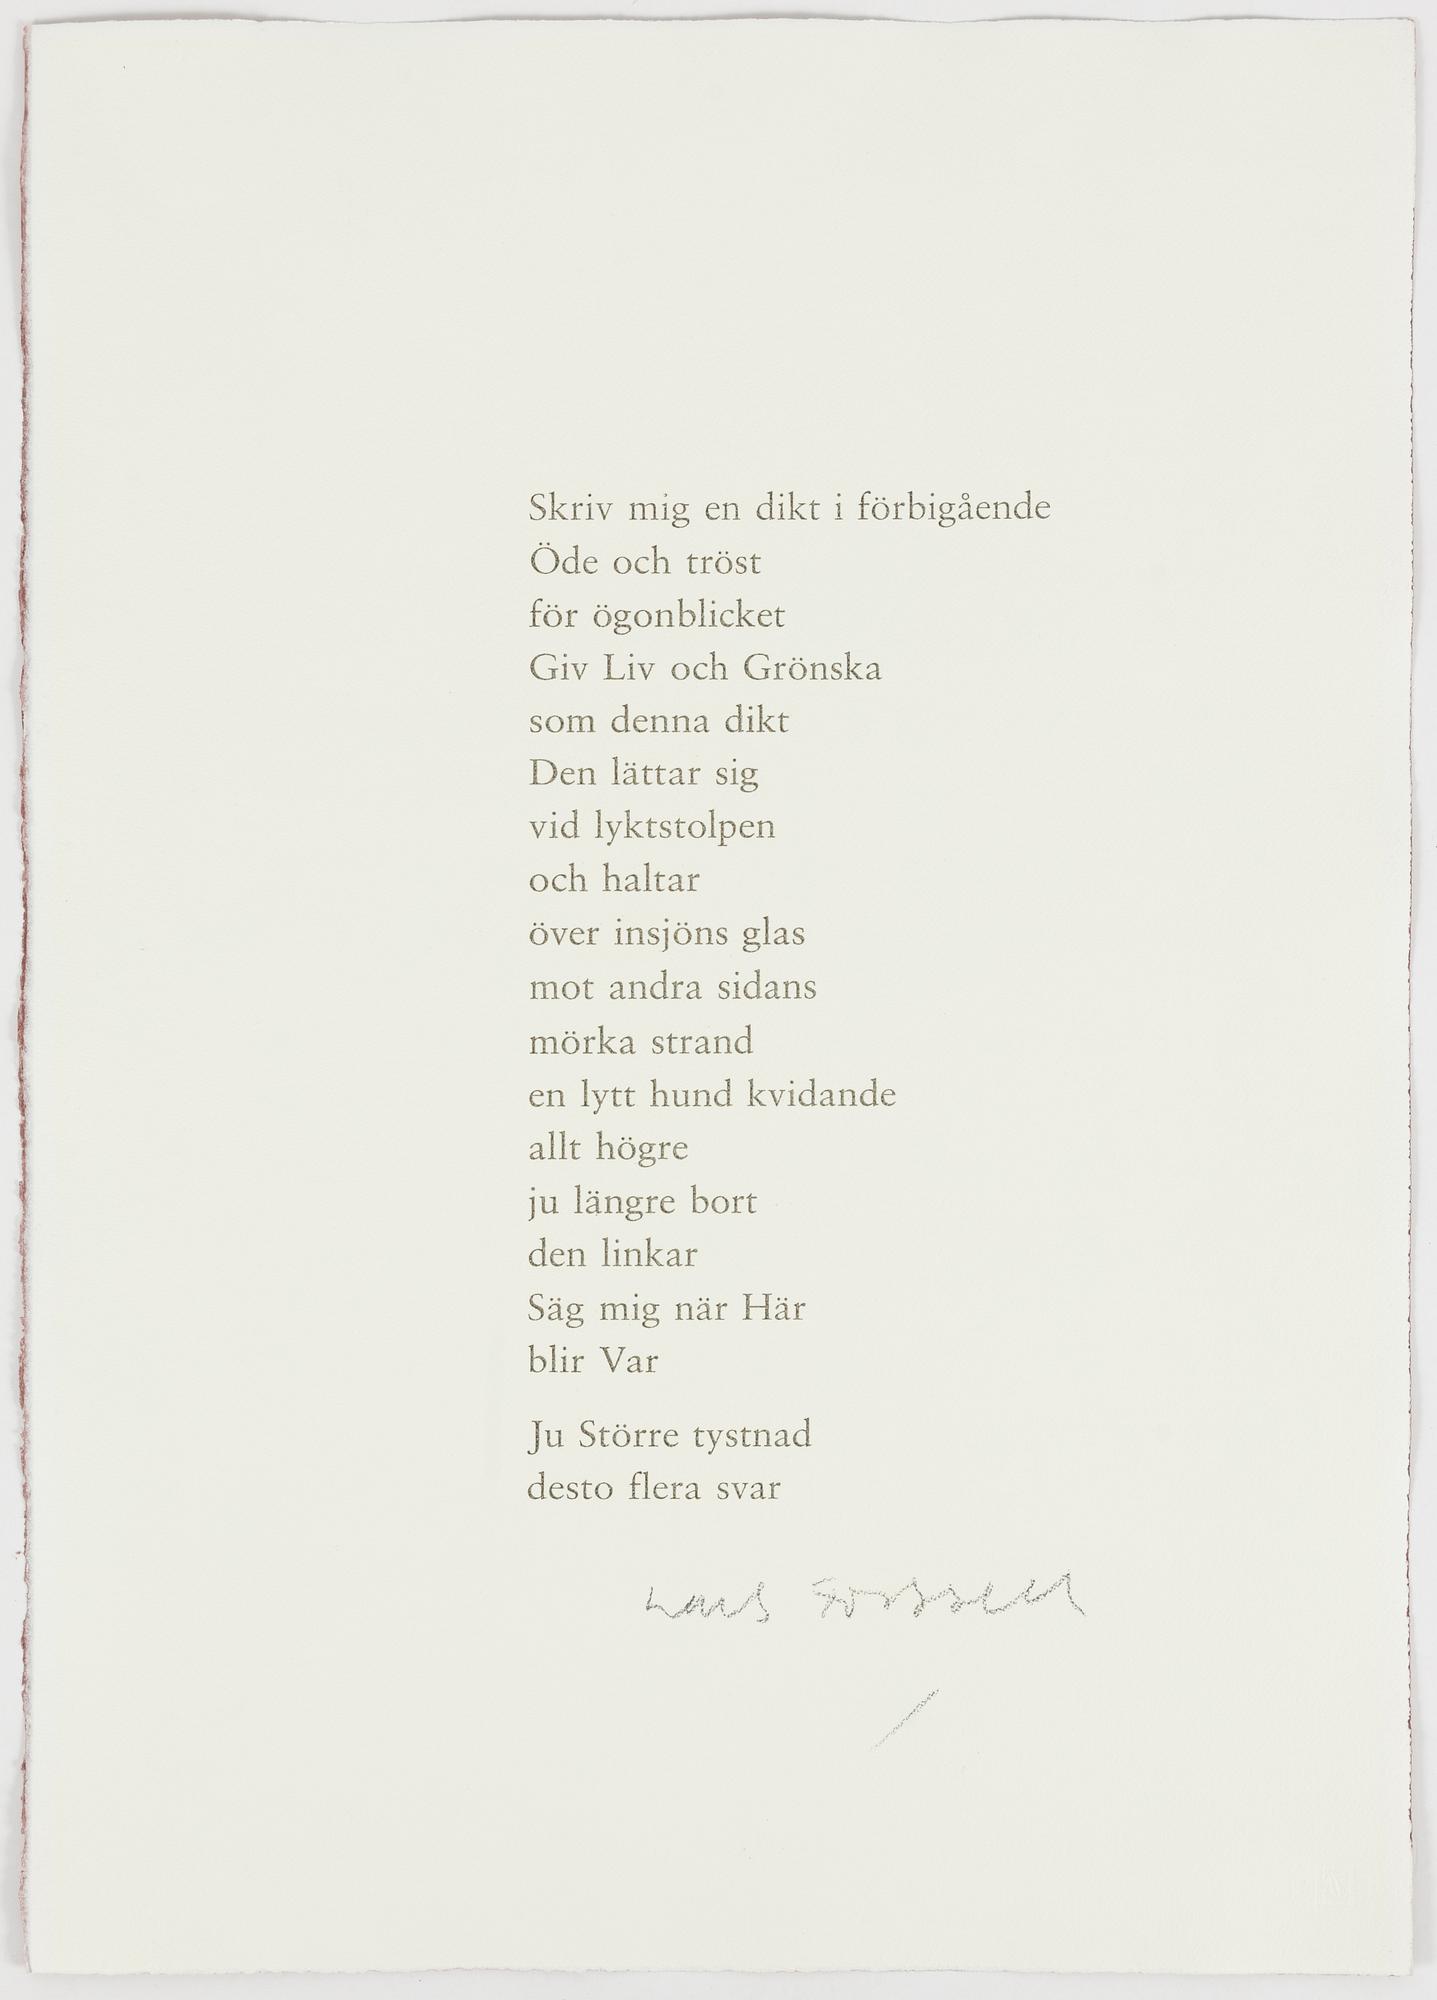 Skriv mig en dikt i förbigående
Öde och tröst
för ögonblicket
Giv Liv och Grönska
som denna dikt
Den lättar sig
vid lyktstolpen
och haltar
över insjöns glas
mot andra sidans
mörka strand
en lytt hund kvidande
allt högre
ju längre bort
den linkar
Säg mig när Här
blir Var
Ju Större tystnad
desto flera svar
Lars Forssell